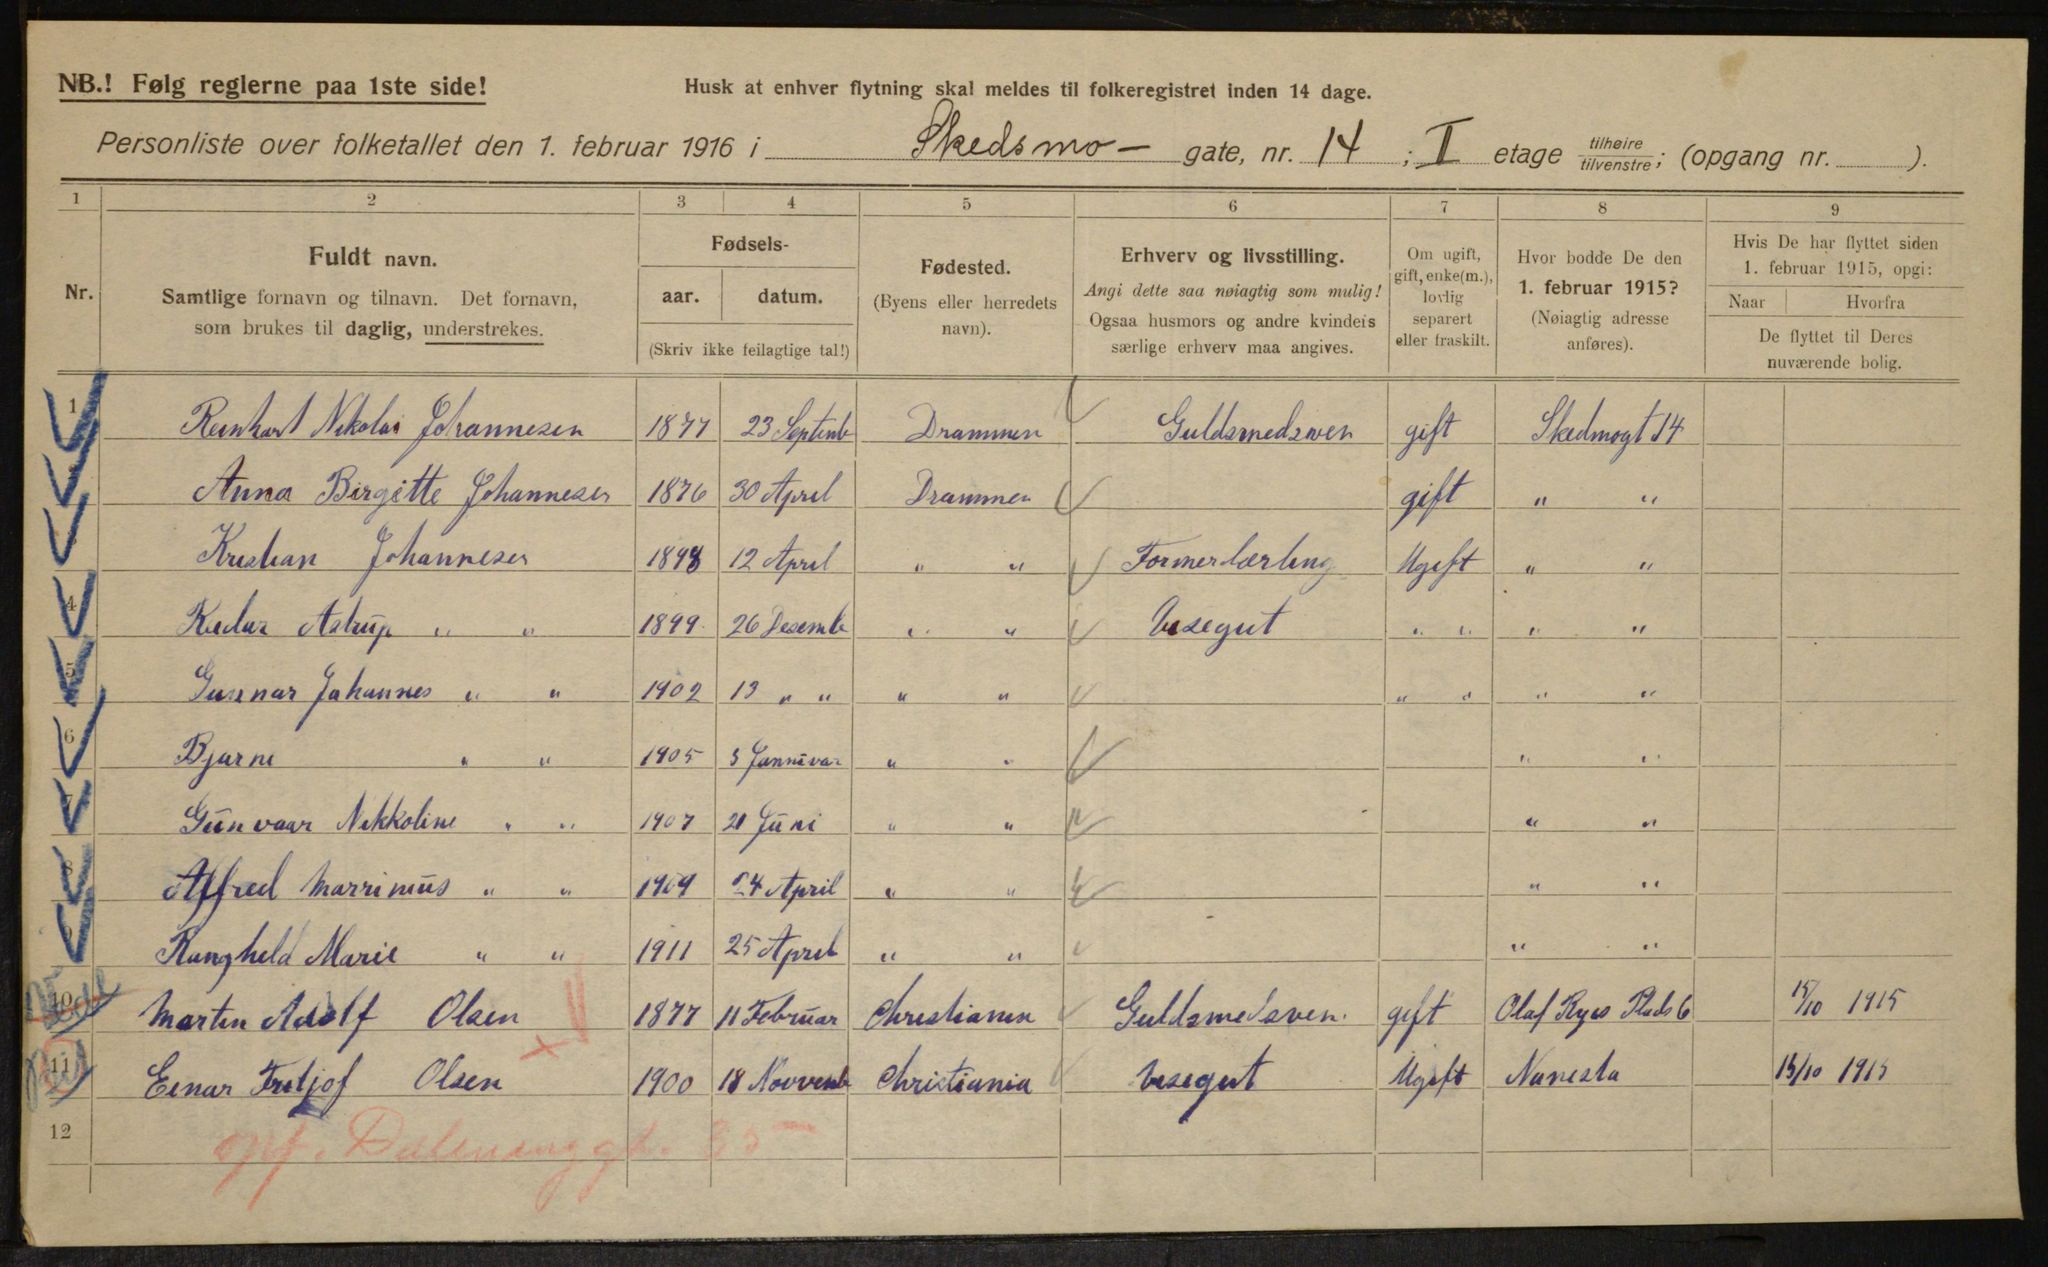 NB.! Følg reglerne paa 1ste side!
Husk at enhver flytning skal meldes til folkeregistret inden 14 dage.
Personliste over folketallet den 1. februar 1916 i Skedsmo- gate, nr. 14 ; I etage tilhøire tilvenstre; (opgang nr. ).
1 2 3 4 5 6 7 8 9
Nr.
Fuldt navn.
Samtlige fornavn og tilnavn. Det fornavn,
som brukes til daglig, understrekes.
Fødsels-
aar. datum.
(Skriv ikke feilagtige tal!)
Fødested.
(Byens eller herredets
navn).
Erhverv og livsstilling.
Angi dette saa nøiagtig som mulig!
Ogsaa husmors og andre kvindeis
særlige erhverv maa angives.
Om ugift,
gift, enke(m.),
lovlig
separert
eller fraskilt.
Hvor bodde De den
1. februar 1915?
(Nøiagtig adresse
anføres).
Hvis De har flyttet siden
1. februar 1915, opgi:
Naar Hvorfra
De flyttet til Deres
nuværende bolig.
1 Reinhart Nikolai Johannesen 1877 23 Septemb Drammen Guldsmedsven gift Skedmogt 14
2 Anna Birgitte Johannesen 1876 30 April Drammen gift " "
3 Kristian Johannesen 1898 12 April " " Formerlærling Ugift " "
4 Astrup " " 1899 26 Desemb " " Visegut " " " "
5 Gunnar Johannes " " 1902 13 " " " " " " " "
6 Bjarne " " 1905 3 Jannuvar " " " "
7 Gunvaar Nikkoline " " 1907 21 Juni " " " "
8 Alfred Marrinius " " 1909 24 April " " " "
9 Rangheld Marie " " 1911 25 April " " " "
10 Martin Adolf Olsen 1877 11 Februar Christiania Guldsmedsven. gift Olaf Ryes Plads 6 15/10 1915
11 Einar Fritjof Olsen 1900 18 Novvemb Christiania Visegut Ugift Nanesta 15/10 1915
12
opf. Dælenenggt. 35